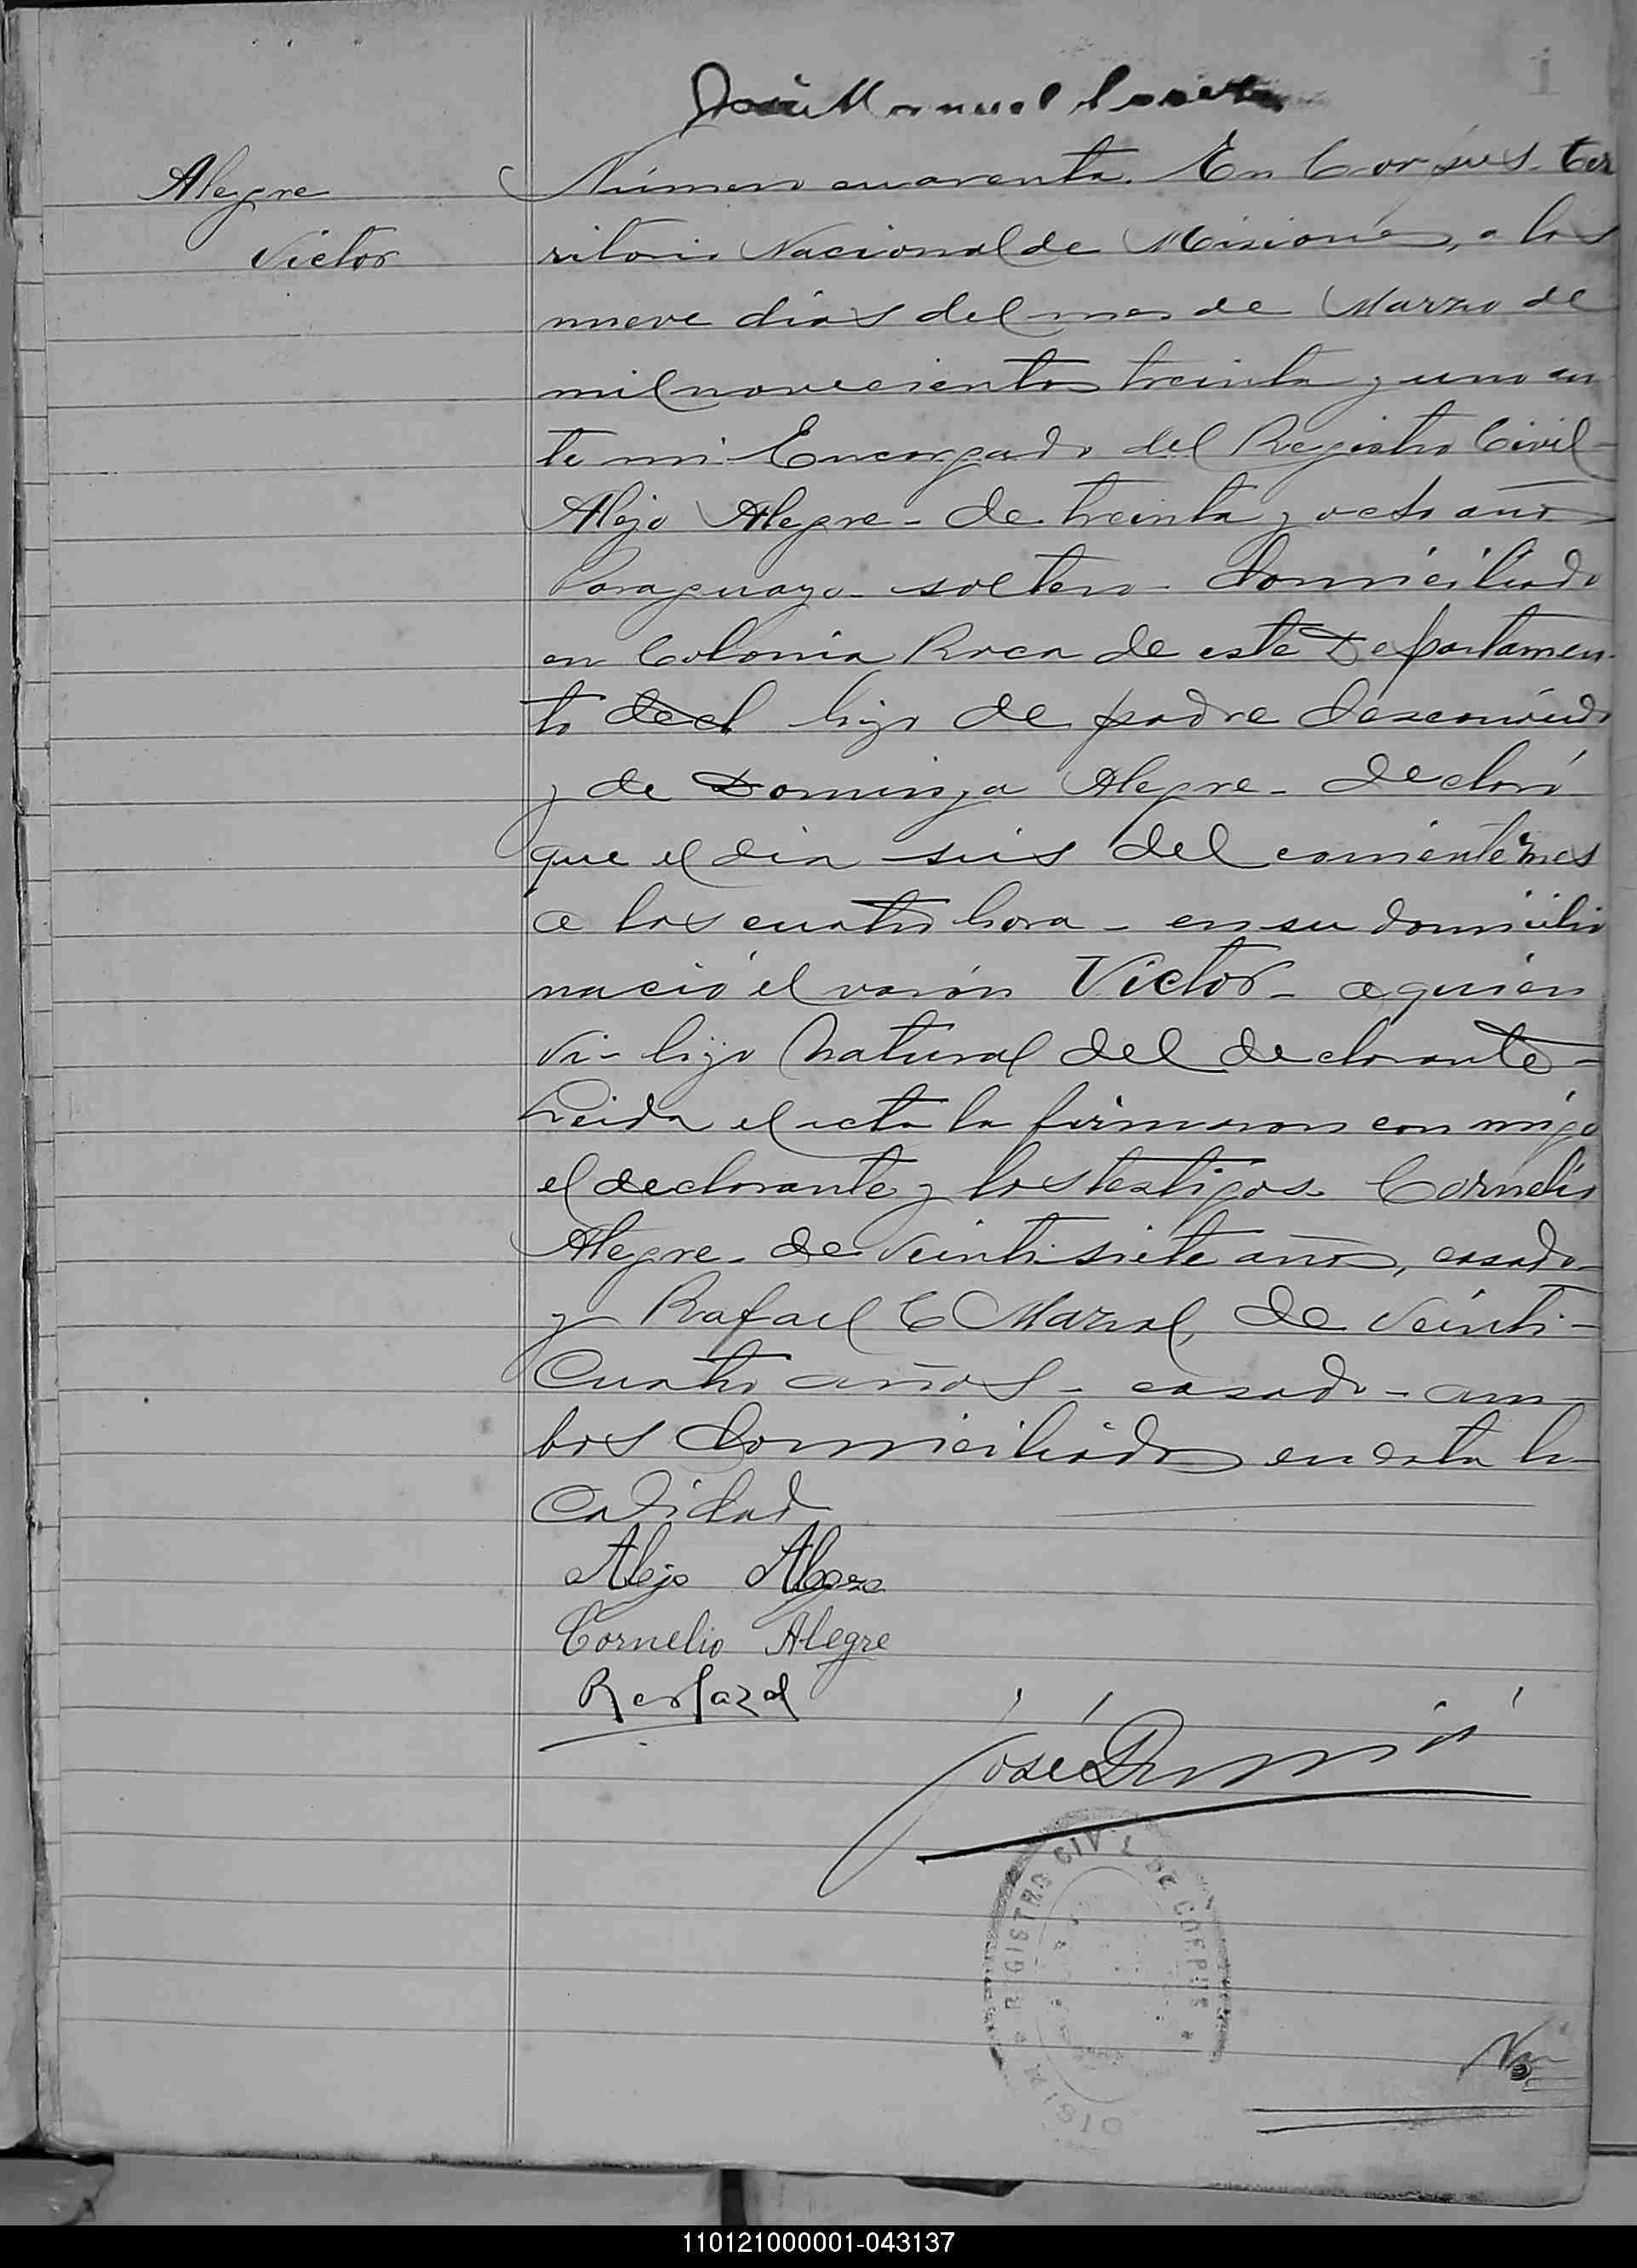 1
José Manuel
Alegre
Victor
Número cuarenta. En Corpus. Ter
ritorio Nacional de Misiones, a los
nueve dias del mes de Marzo de
mil novecientos treinta y uno an
te mi Encargado del Registro Civil -
Alejo Alegre - de treinta y ocho años
Paraguayo - soltero - domiciliado
en Colonia Roca de este Departamen-
to decl hijo de padre desconocido
y de Dominga Alegre - declaró
que el dia seis del corriente mes
a las cuatro hora - en su domicilio
nació el varón Victor - a quien
vi - hijo natural del declarante -
Leida el acta la firmaron conmigo
el declarante y los testigos. Cornelio
Alegre - de veintisiete años, casado -
y Rafael C Marzal, de veinti -
cuatro años - casado - am -
bos domiciliados en esta lo
calidad
Alejo Alegre
Cornelio Alegre
José
REGISTRO CIVIL DE CORPUS
1810
110121000001-043137